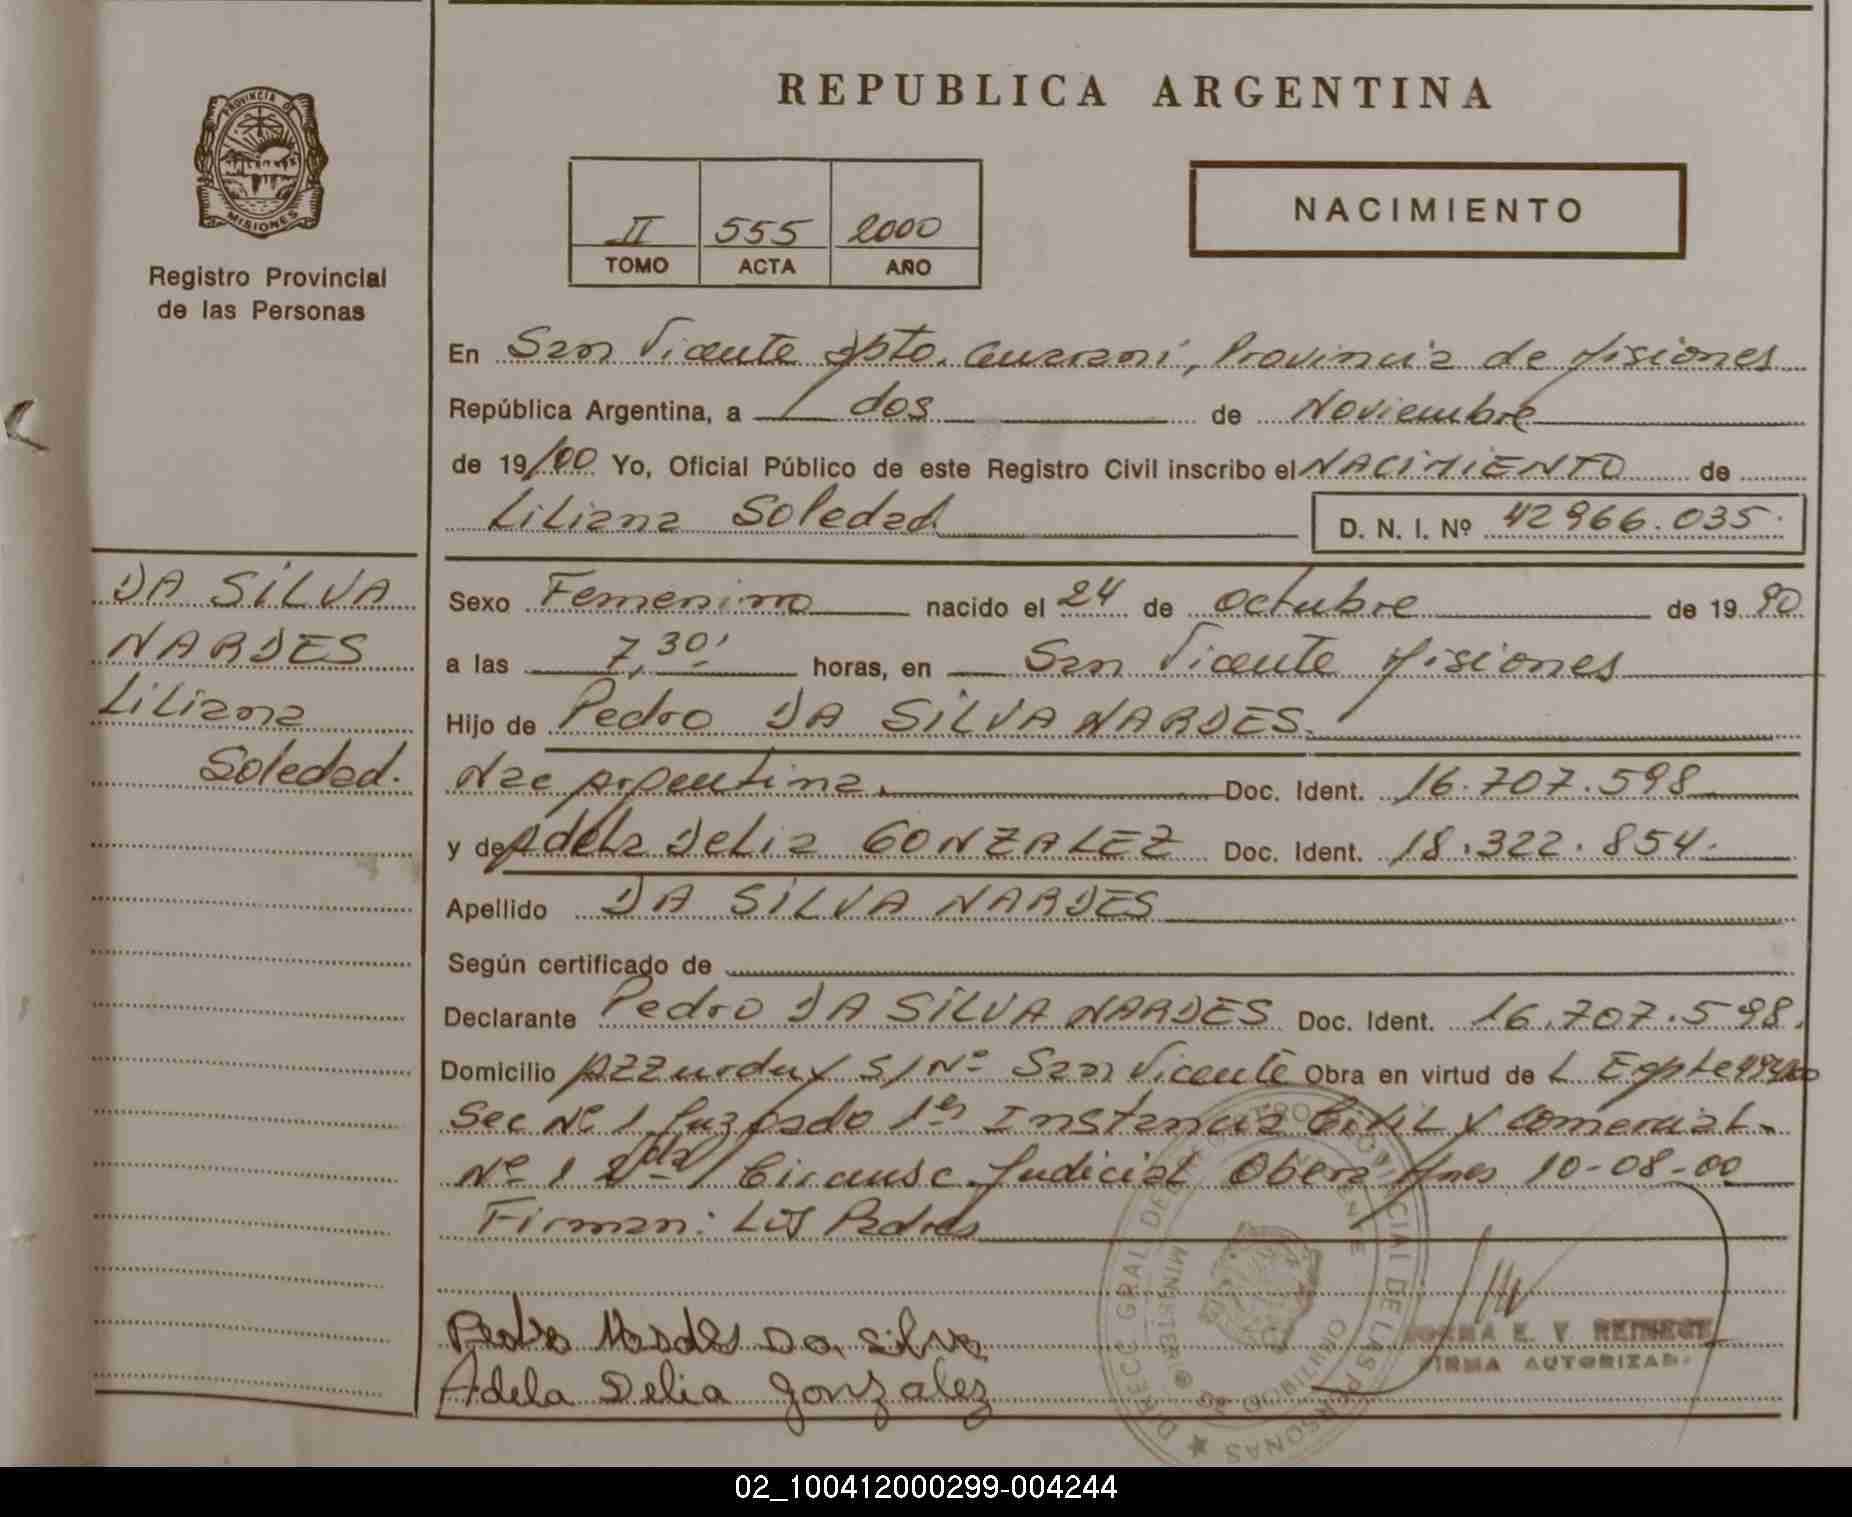 PROVINCIA DE
MISIONES
Registro Provincial
de las Personas
DA SILVA
NARDES
Liliana
Soledad.
REPUBLICA ARGENTINA
II 555 2000
TOMO ACTA AÑO
NACIMIENTO
En San Vicente Dpto. Guaraní, Provincia de Misiones
República Argentina, a dos de Noviembre
de 19/00 Yo, Oficial Público de este Registro Civil inscribo el NACIMIENTO de
Liliana Soledad
D. N. I. Nº 42966.035.
Sexo Femenino nacido el 24 de octubre de 19 90
a las 7,30' horas, en San Vicente Misiones
Hijo de Pedro DA SILVA NARDES.
Nac Argentina. Doc. Ident. 16.707.598
y de Adela Delia GONZALEZ Doc. Ident. 18.322.854.
Apellido DA SILVA NARDES
Según certificado de
Declarante Pedro DA SILVA NARDES Doc. Ident. 16.707.598.
Domicilio Azzurduy S/Nº San Vicente Obra en virtud de L Expte
Sec Nº 1 Juzgado 1er Instancia Civil y Comercial.
Nº 1 2da Circunsc. Judicial Obera Mnes 10-08-00
Firman: Los Padres
Pedro Nardes Da silva
Adela Delia gonzalez
NORMA E. V.
FIRMA AUTORIZAD.
DIRECC GRAL DEL REGISTRO PROVINCIAL DE LAS PERSONAS
02_100412000299-004244